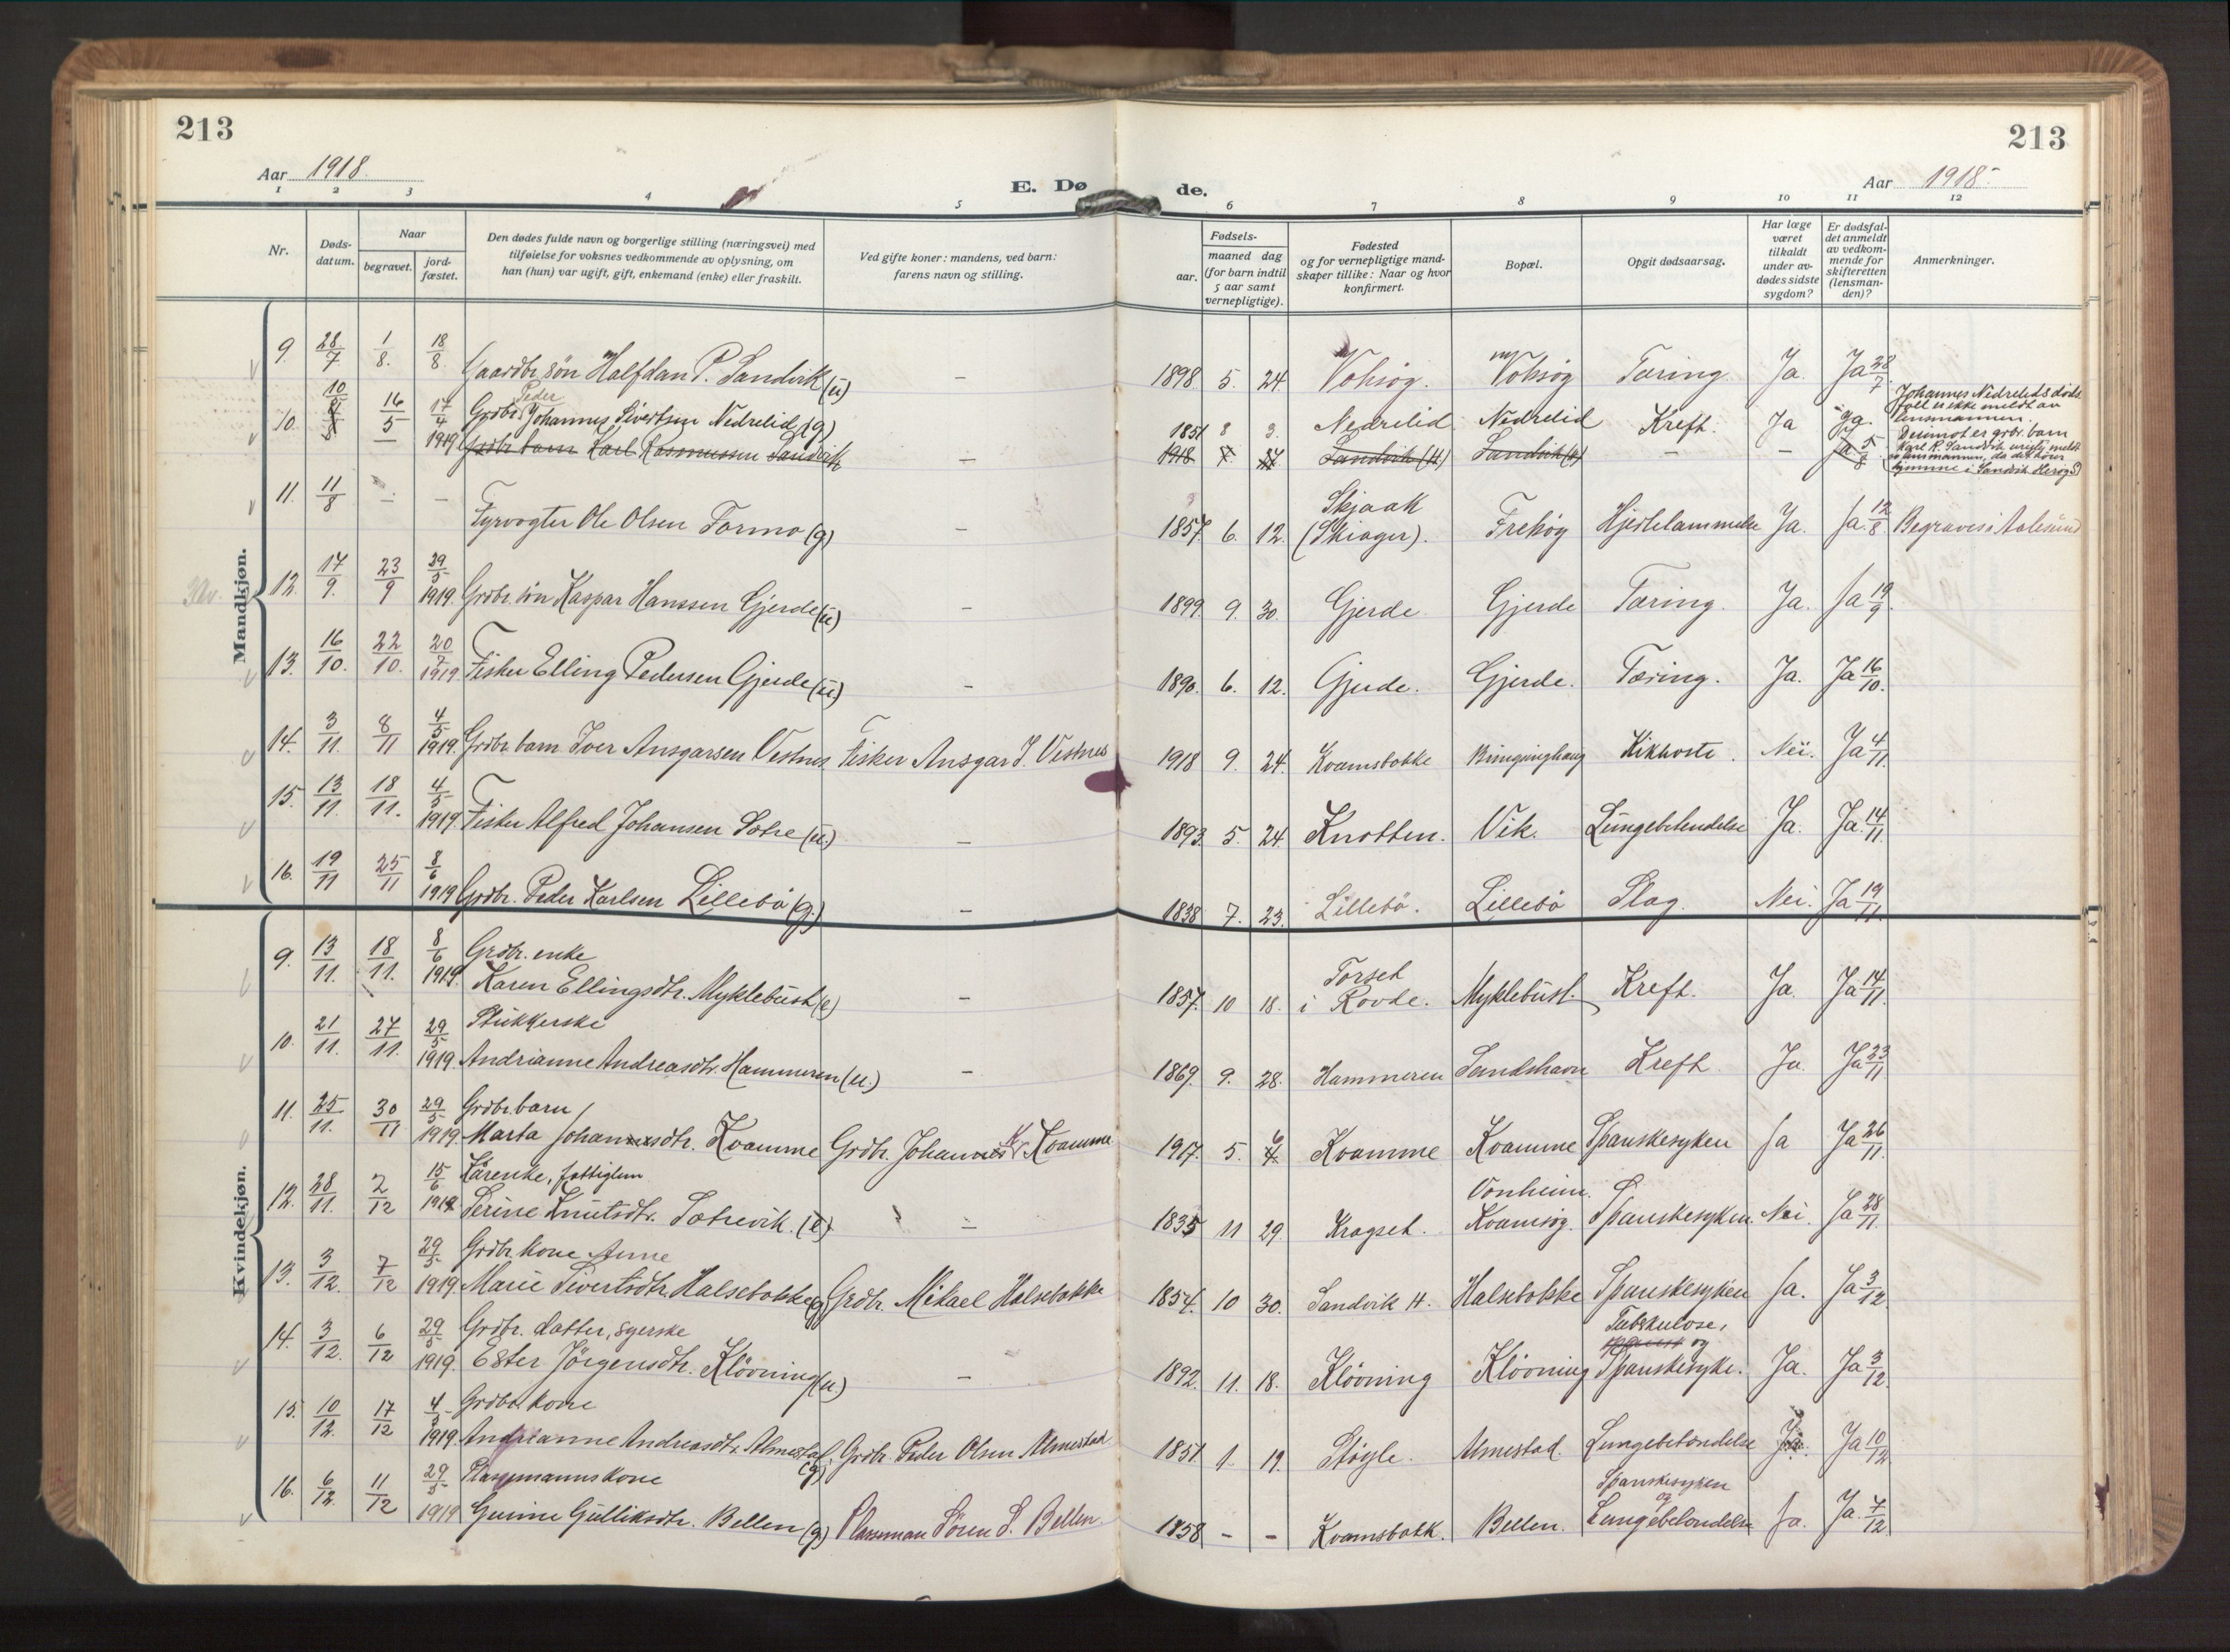 213
213
Aar 1918.
Aar 1918
E. Dø
de.
1 2 3 4 5 6 7 8 9 10 11 12
Nr.
Døds-
datum.
Naar
begravet.
jord-
fæstet.
Den dødes fulde navn og borgerlige stilling (næringsvei) med
tilføielse for voksnes vedkommende av oplysning, om
han (hun) var ugift, gift, enkemand (enke) eller fraskilt.
Ved gifte koner: mandens, ved barn:
farens navn og stilling.
Fødsels-
aar.
maaned dag
(for barn indtil
5 aar samt
vernepligtige).
Fødested
og for vernepligtige mand-
skaper tillike: Naar og hvor
konfirmert.
Bopæl.
Opgit dødsaarsag.
Har læge
været
tilkaldt
under av-
dødes sidste
sygdom?
Er dødsfal-
det anmeldt
av vedkom-
mende for
skifteretten
(lensman-
den)?
Anmerkninger.
Mandkjøn.
9. 28/7 1/8. 18/8. Gaardbr. søn Halfdan P. Sandvik (u) — 1898 5. 24. Voksøg. Voksøg Tæring. Ja. Ja 28/7
Peder
10. 10/5 16/5 17/4 1919 Grdbr. Johannes Sivertsen Nedrelid (g) 1851 8 3. Nedrelid Nedrelid Kreft. Ja Ja.
— Grdbr. barn Karl Rasmussen Sandvik — 1918 Sandvik (H) Sandvik (H) — — Ja 5/8
Johannes Nedrelids døds
fall er ikke meldt av
lensmannen.
Derimot er grbr. barn
Karl R. Sandvik urigtig meldt
av lensmannen, da det hører
hjemme i Sandvik Herøy S.
11. 11/8 — — Fyrvogter Ole Olsen Formo (g) — 1857. 6. 12. Skjaak (Skiager). Frekøg Hjertelammelse Ja. Ja. 12/8. Begraves i Aalesund
12. 17/9. 23/9 29/5 1919. Grdbr. søn Kaspar Hanssen Gjerde (u) — 1899. 9. 30. Gjerde Gjerde Tæring. Ja. Ja 19/9.
13. 16/10. 22/10. 20/7 1919. Fisker Elling Pedersen Gjerde (u) — 1890. 6. 12. Gjerde. Gjerde. Tæring. Ja. Ja 16/10.
14. 3/11. 8/11 4/5 1919. Grdbr. barn Iver Ansgarsen Vestnes Fisker Ansgar I. Vestnes 1918 9. 24. Kvamsbakke Bringsinghaug Kikhoste. Nei. Ja 4/11.
15. 13/11. 18/11. 4/5 1919. Fisker Alfred Johansen Sætre (u.) — 1893. 5. 24. Knotten. Vik. Lungebetendelse Ja. Ja. 14/11.
16. 19/11 25/11 8/6 1919 Grdbr. Peder Karlsen Lillebø (g.) — 1838 7. 23. Lillebø. Lillebø Slag. Nei. Ja 19/11.
Kvindekjøn.
9. 13/11. 18/11. 8/6 1919. Grdbr. enke
Karen Ellingsdtr. Myklebust (e) — 1857. 10 18. Torset i Rovde. Myklebust. Kreft. Ja. Ja 14/11.
10. 21/11. 27/11. 29/5 1919. Strikkerske
Andrianne Andreasdtr. Hammeren (u.) — 1869. 9. 28. Hammeren Sandshavn Kreft. Ja. Ja 23/11
11. 25/11. 30/11 29/5 1919. Grdbr. barn
Marta Johannesdtr. Kvamme Grdbr. Johannes K. Kvamme 1917. 5. 6 Kvamme Kvamme Spanskesyken Ja Ja 26/11.
12. 28/11. 2/12 15/6 1919 Kårenke, fattiglem
Serine Knutsdtr. Sætrevik. (e) — 1835 11 29. Kragset. Vonheim. Kvamsøg. Spanskesyken. Nei. Ja 28/11.
13. 3/12. 7/12 29/5 1919 Grdbr. kone Anne
Marie Sivertsdtr. Halsebakke (g) Grdbr. Mikael Halsebakke 1854. 10 30. Sandvik H. Halsebakke Spanskesyken Ja. Ja 3/12.
14. 3/12. 6/12 29/5 1919. Grdbr. datter, syerske
Ester Jørgensdtr. Kløvning (u.) — 1892. 11. 18. Kløvning Kløvning Tuberkulose, og Spanskesyke. Ja. Ja 3/12.
15. 10/12. 17/12 4/5 1919 Grdbr. kone
Andrianne Andreasdtr. Almestad. (g) Grdbr. Peder Olsen Almestad. 1851 1. 19. Støyle. Almestad. Lungebetændelse Ja. Ja 10/12
16. 6/12. 11/12 29/5 1919 Plassmannskone
Gunine Gulliksdtr. Bellen (g) Plassman Søren S. Bellen. 1858 - - Kvamsbakk. Bellen. Spanskesyken og Lungebetændelse Ja. Ja. 7/12